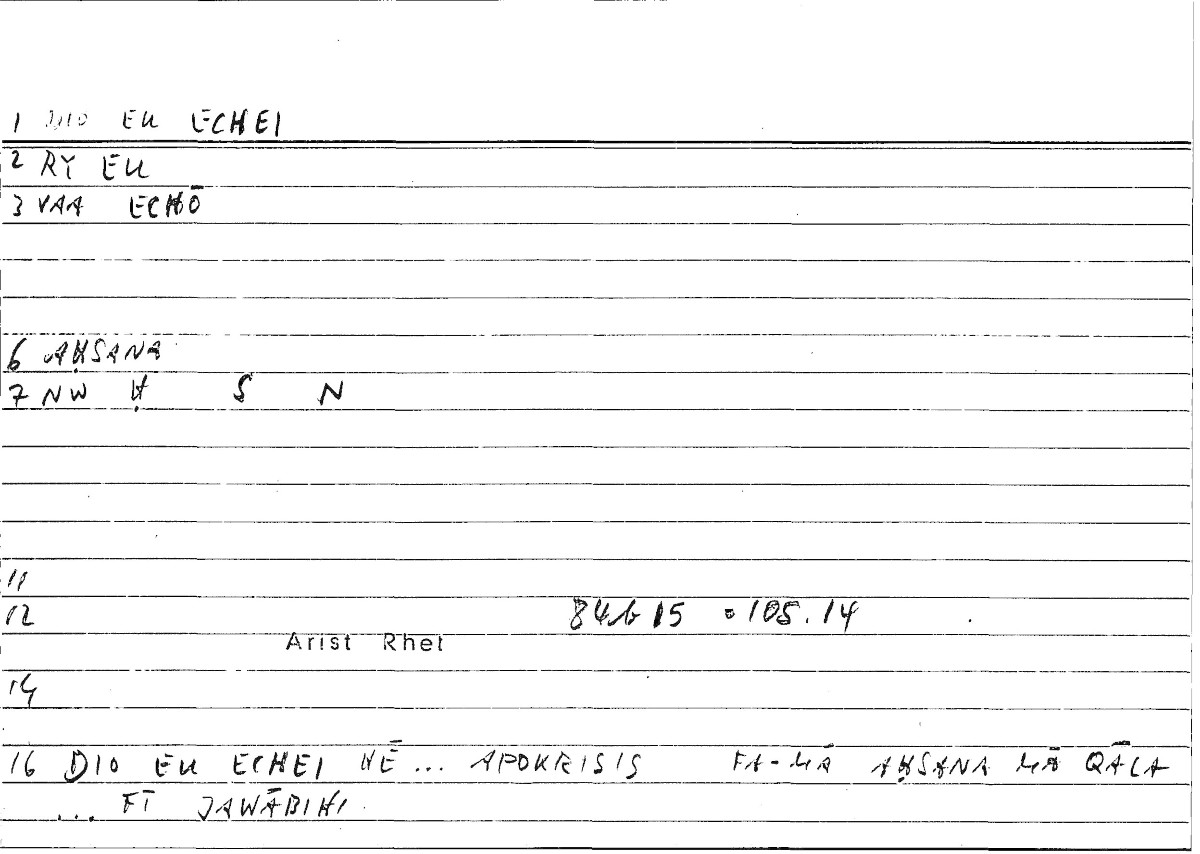 1 DIO EU ECHEI
2 RY EU
3 VAA ECHŌ
6 AḤSANA
7 NW Ḥ S N
11
12 84b15 = 105.14
Arist Rhet
14
16 DIO EU ECHEI HĒ... APOKRISIS FA-MĀ AḤSANA MĀ QĀLA
... FĪ JAWĀBIHI